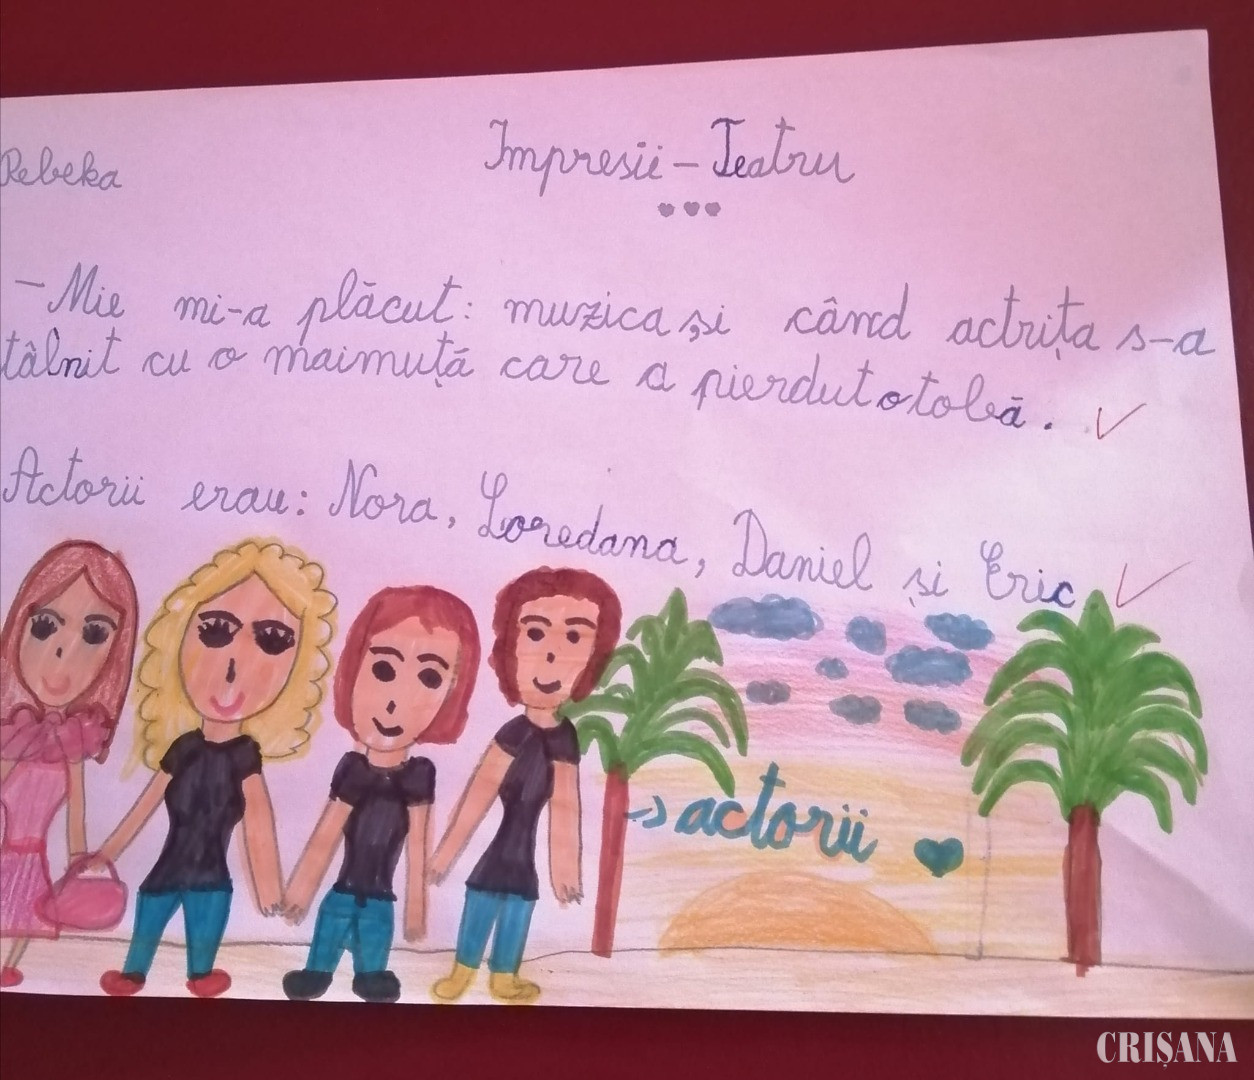 Rebeka
Impresii - Teatru
- Mie mi-a plăcut: muzica și când actrița s-a
tâlnit cu o maimuță care a pierdut o tobă.
Actorii erau: Nora, Loredana, Daniel și Eric
→ actorii
CRIȘANA